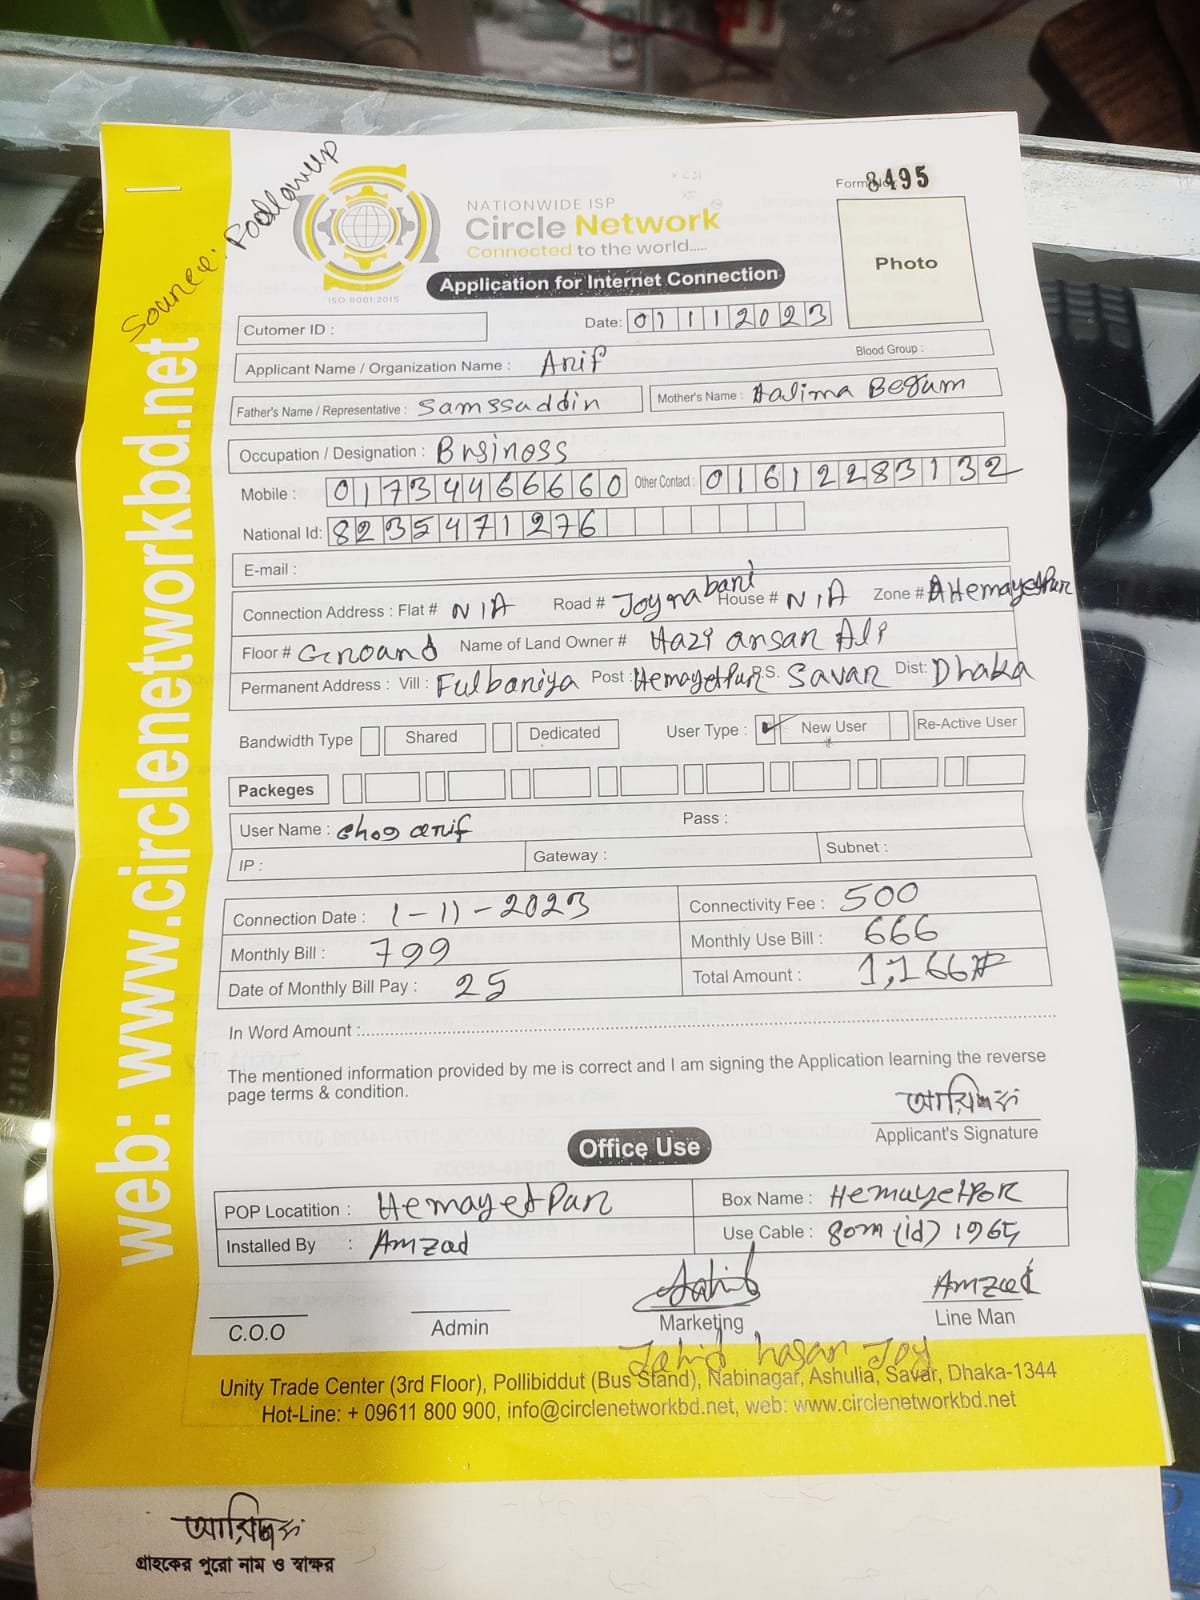 Source: Foollowup
NATIONWIDE ISP
Circle Network
Connected to the world.....
ISO 9001:2015
Form No 8495
Photo
Application for Internet Connection
Cutomer ID :
Date: 01112023
Applicant Name / Organization Name : Arif
Blood Group :
Father's Name / Representative : Samssuddin
Mother's Name : Halima Begum
Occupation / Designation : Business
Mobile : 01734466660
Other Contact : 01612283132
National Id: 8235471276
E-mail :
Connection Address : Flat # N/A Road # Joynabari House # N/A Zone # Hemayetpur
Floor # Ground Name of Land Owner # Hazi ansar Ali
Permanent Address : Vill : Fulbariya Post : Hemayetpur P.S. Savar Dist: Dhaka
Bandwidth Type Shared Dedicated User Type : ✓ New User Re-Active User
Packeges
User Name : arif
Pass :
IP :
Gateway :
Subnet :
Connection Date : 1-11-2023
Connectivity Fee : 500
Monthly Bill : 799
Monthly Use Bill : 666
Date of Monthly Bill Pay : 25
Total Amount : 1,166
In Word Amount :
The mentioned information provided by me is correct and I am signing the Application learning the reverse
page terms & condition.
Applicant's Signature
Office Use
POP Locatition : Hemayetpur
Box Name : Hemayetpor
Installed By : Amzad
Use Cable : 80m (id) 1965
C.O.O
Admin
Marketing
Amzad
Line Man
Jahid hasan Joy
Unity Trade Center (3rd Floor), Pollibiddut (Bus Stand), Nabinagar, Ashulia, Savar, Dhaka-1344
Hot-Line: + 09611 800 900, info@circlenetworkbd.net, web: www.circlenetworkbd.net
web: www.circlenetworkbd.net
গ্রাহকের পুরো নাম ও স্বাক্ষর